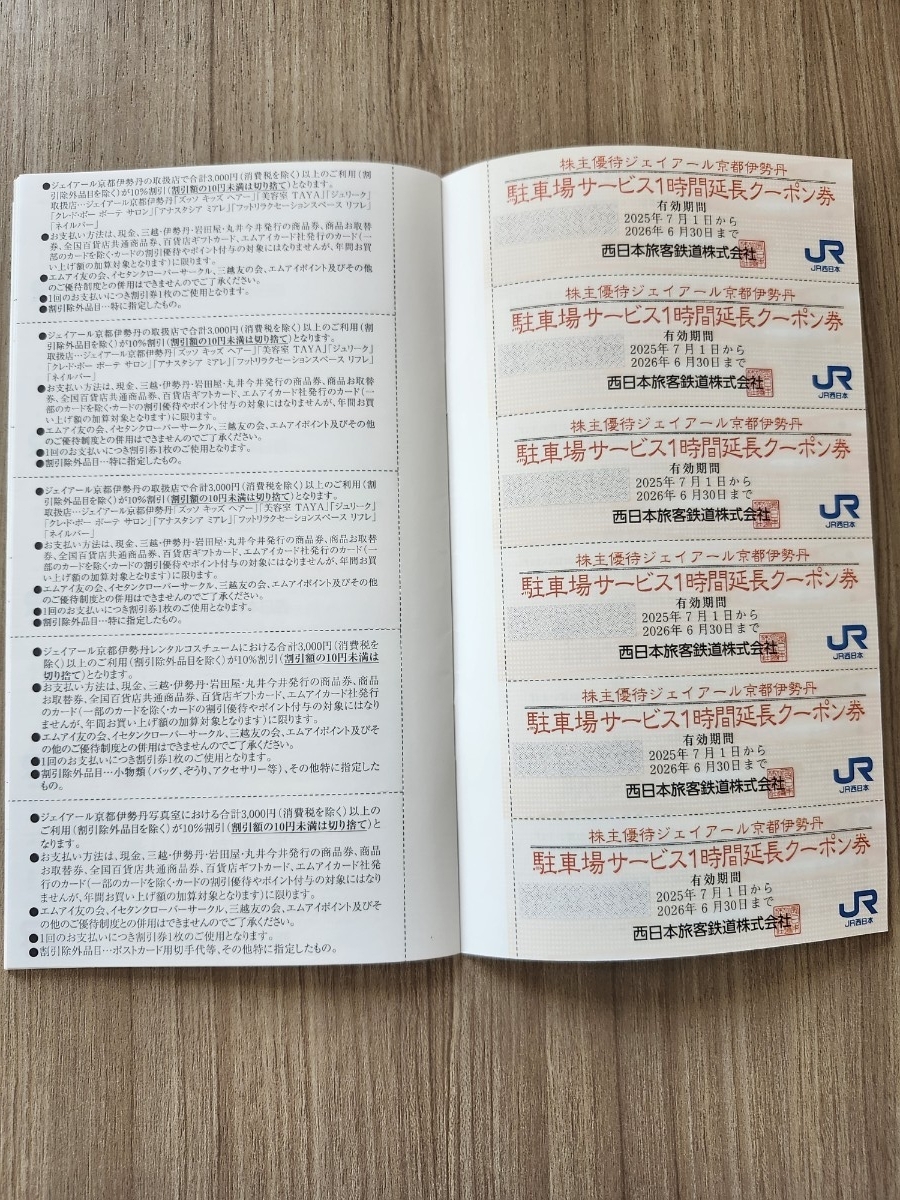 ●ジェイアール京都伊勢丹の取扱店で合計3,000円(消費税を除く)以上のご利用(割
引除外品目を除く)が10%割引(割引額の10円未満は切り捨て)となります。
取扱店…ジェイアール京都伊勢丹「ズッソ キッズ ヘアー」「美容室 TAYA」「ジュリーク」
「クレ・ド・ポー ボーテ サロン」「アナスタシア ミアレ」「フットリラクセーションスペース リフレ」
「ネイルバー」
●お支払い方法は、現金、三越・伊勢丹・岩田屋・丸井今井発行の商品券、商品お取替
券、全国百貨店共通商品券、百貨店ギフトカード、エムアイカード社発行のカード(一
部のカードを除く・カードの割引優待やポイント付与の対象にはなりませんが、年間お買
い上げ額の加算対象となります)に限ります。
●エムアイ友の会、イセタンクローバーサークル、三越友の会、エムアイポイント及びその他
のご優待制度との併用はできませんのでご了承ください。
●1回のお支払いにつき割引券1枚のご使用となります。
●割引除外品目…特に指定したもの。
●ジェイアール京都伊勢丹の取扱店で合計3,000円(消費税を除く)以上のご利用(割
引除外品目を除く)が10%割引(割引額の10円未満は切り捨て)となります。
取扱店…ジェイアール京都伊勢丹「ズッソ キッズ ヘアー」「美容室 TAYA」「ジュリーク」
「クレ・ド・ポー ボーテ サロン」「アナスタシア ミアレ」「フットリラクセーションスペース リフレ」
「ネイルバー」
●お支払い方法は、現金、三越・伊勢丹・岩田屋・丸井今井発行の商品券、商品お取替
券、全国百貨店共通商品券、百貨店ギフトカード、エムアイカード社発行のカード(一
部のカードを除く・カードの割引優待やポイント付与の対象にはなりませんが、年間お買
い上げ額の加算対象となります)に限ります。
●エムアイ友の会、イセタンクローバーサークル、三越友の会、エムアイポイント及びその他
のご優待制度との併用はできませんのでご了承ください。
●1回のお支払いにつき割引券1枚のご使用となります。
●割引除外品目…特に指定したもの。
●ジェイアール京都伊勢丹の取扱店で合計3,000円(消費税を除く)以上のご利用(割
引除外品目を除く)が10%割引(割引額の10円未満は切り捨て)となります。
取扱店…ジェイアール京都伊勢丹「ズッソ キッズ ヘアー」「美容室 TAYA」「ジュリーク」
「クレ・ド・ポー ボーテ サロン」「アナスタシア ミアレ」「フットリラクセーションスペース リフレ」
「ネイルバー」
●お支払い方法は、現金、三越・伊勢丹・岩田屋・丸井今井発行の商品券、商品お取替
券、全国百貨店共通商品券、百貨店ギフトカード、エムアイカード社発行のカード(一
部のカードを除く・カードの割引優待やポイント付与の対象にはなりませんが、年間お買
い上げ額の加算対象となります)に限ります。
●エムアイ友の会、イセタンクローバーサークル、三越友の会、エムアイポイント及びその他
のご優待制度との併用はできませんのでご了承ください。
●1回のお支払いにつき割引券1枚のご使用となります。
●割引除外品目…特に指定したもの。
●ジェイアール京都伊勢丹レンタルコスチュームにおける合計3,000円(消費税を
除く)以上のご利用(割引除外品目を除く)が10%割引(割引額の10円未満は
切り捨て)となります。
●お支払い方法は、現金、三越・伊勢丹・岩田屋・丸井今井発行の商品券、商品
お取替券、全国百貨店共通商品券、百貨店ギフトカード、エムアイカード社発行
のカード(一部のカードを除く・カードの割引優待やポイント付与の対象にはなり
ませんが、年間お買い上げ額の加算対象となります)に限ります。
●エムアイ友の会、イセタンクローバーサークル、三越友の会、エムアイポイント及び
その他のご優待制度との併用はできませんのでご了承ください。
●1回のお支払いにつき割引券1枚のご使用となります。
●割引除外品目…小物類(バッグ、ぞうり、アクセサリー等)、その他特に指定したも
の。
●ジェイアール京都伊勢丹写真室における合計3,000円(消費税を除く)以上の
ご利用(割引除外品目を除く)が10%割引(割引額の10円未満は切り捨て)と
なります。
●お支払い方法は、現金、三越・伊勢丹・岩田屋・丸井今井発行の商品券、商品
お取替券、全国百貨店共通商品券、百貨店ギフトカード、エムアイカード社発
行のカード(一部のカードを除く・カードの割引優待やポイント付与の対象にはなり
ませんが、年間お買い上げ額の加算対象となります)に限ります。
●エムアイ友の会、イセタンクローバーサークル、三越友の会、エムアイポイント及びそ
の他のご優待制度との併用はできませんのでご了承ください。
●1回のお支払いにつき割引券1枚のご使用となります。
●割引除外品目…ポストカード用切手代等、その他特に指定したもの。
株主優待ジェイアール京都伊勢丹
駐車場サービス1時間延長クーポン券
有効期間
2025年7月1日から
2026年6月30日まで
西日本旅客鉄道株式会社
JR
JR西日本
株主優待ジェイアール京都伊勢丹
駐車場サービス1時間延長クーポン券
有効期間
2025年7月1日から
2026年6月30日まで
西日本旅客鉄道株式会社
JR
JR西日本
株主優待ジェイアール京都伊勢丹
駐車場サービス1時間延長クーポン券
有効期間
2025年7月1日から
2026年6月30日まで
西日本旅客鉄道株式会社
JR
JR西日本
株主優待ジェイアール京都伊勢丹
駐車場サービス1時間延長クーポン券
有効期間
2025年7月1日から
2026年6月30日まで
西日本旅客鉄道株式会社
JR
JR西日本
株主優待ジェイアール京都伊勢丹
駐車場サービス1時間延長クーポン券
有効期間
2025年7月1日から
2026年6月30日まで
西日本旅客鉄道株式会社
JR
JR西日本
株主優待ジェイアール京都伊勢丹
駐車場サービス1時間延長クーポン券
有効期間
2025年7月1日から
2026年6月30日まで
西日本旅客鉄道株式会社
JR
JR西日本